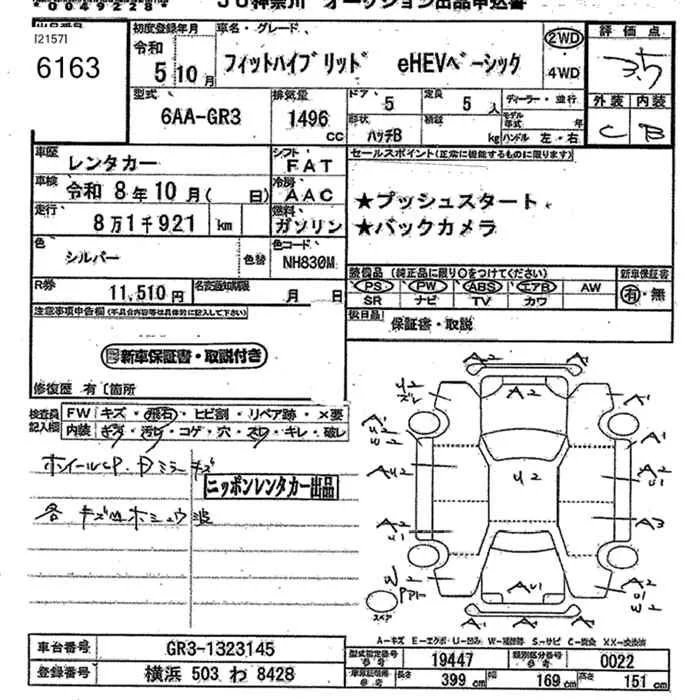 JU神奈川 オークション出品申込書
出品番号
[21571
6163
初度登録年月
令和
5年10月
車名・グレード
フィットハイブリッド eHEVベーシック
2WD
4WD
評価点
3.5
外装 内装
C B
型式
6AA-GR3
排気量
1496 CC
ドア 5
形状 ハッチB
定員 5人
積載 kg
ディーラー・並行
モデル年式 年
ハンドル 左・右
車歴 レンタカー
シフト FAT
車検 令和 8年10月( 日)
冷房 AAC
走行 8万1千921 km
燃料 ガソリン
色 シルバー
色替
色コード NH830M
セールスポイント(正常に機能するものに限ります)
★プッシュスタート
★バックカメラ
R券 11,510円
名変通知期限 月 日
装備品(純正品に限り○をつけてください)
PS PW ABS エアB AW
SR ナビ TV カワ
新車保証書
有・無
注意事項申告欄(不具合内容等は具体的に記入して下さい)
新車保証書・取説付き
後日品
保証書・取説
修復歴 有〔箇所
検査員記入欄
FW キズ・飛石・ヒビ割・リペア跡・×要
内装 キズ・汚レ・コゲ・穴・スレ・キレ・破レ
ホイールCP.Dミラーキズ
ニッポンレンタカー出品
各キズ凹ホミュウ波
A2
A2
U2
ズレ
A1
A1
U2
AU2
A2
U1
A3
A2
AU1
PP1
スペア
A-キズ E-エクボ U-凹ミ W-補修跡 S-サビ C-腐食 XX-交換済
車台番号 GR3-1323145
登録番号 横浜 503 わ 8428
型式指定番号 参考 19447
類別区分番号 参考 0022
車庫証明用 参考
長さ 399 cm
幅 169 cm
高さ 151 cm